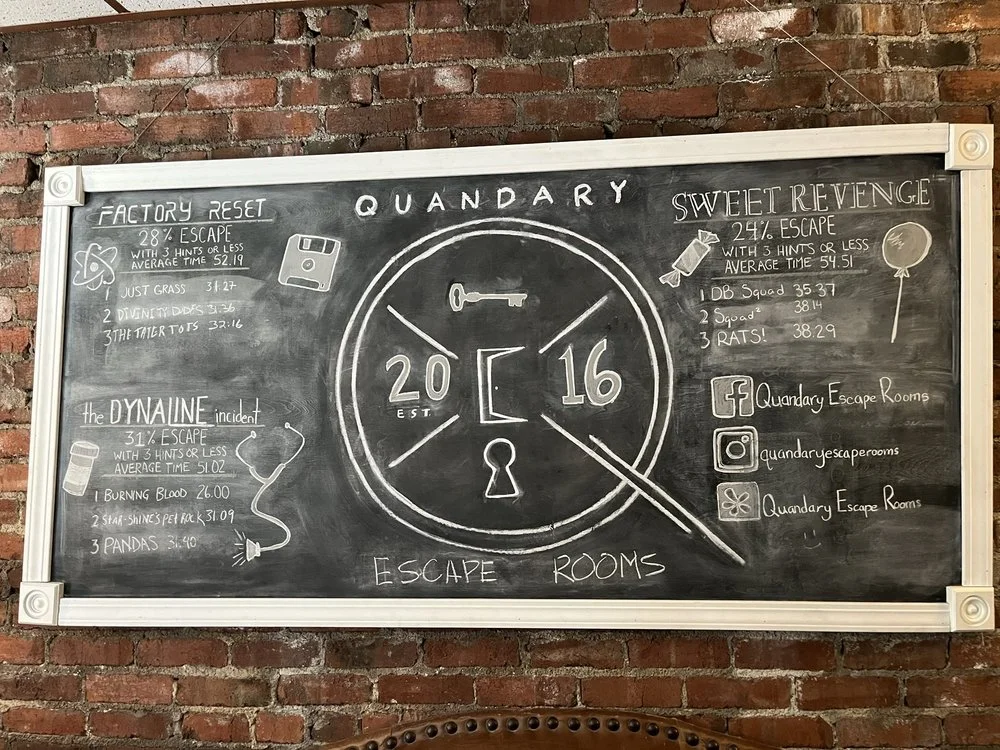 QUANDARY
FACTORY RESET
28% ESCAPE
WITH 3 HINTS OR LESS
AVERAGE TIME 52.19
1 JUST GRASS 31.27
2 DIVINITY DUDES 31.36
3 THE TATER TOTS 32:16
the DYNALINE incident
31% ESCAPE
WITH 3 HINTS OR LESS
AVERAGE TIME 51.02
1 BURNING BLOOD 26.00
2 STAR-SHINE'S PET ROCK 31.09
3 PANDAS 31.40
20 16
EST.
ESCAPE ROOMS
SWEET REVENGE
24% ESCAPE
WITH 3 HINTS OR LESS
AVERAGE TIME 54.51
1 DB Squad 35.37
2 Squad² 38.14
3 RATS! 38.29
f Quandary Escape Rooms
quandaryescaperooms
Quandary Escape Rooms